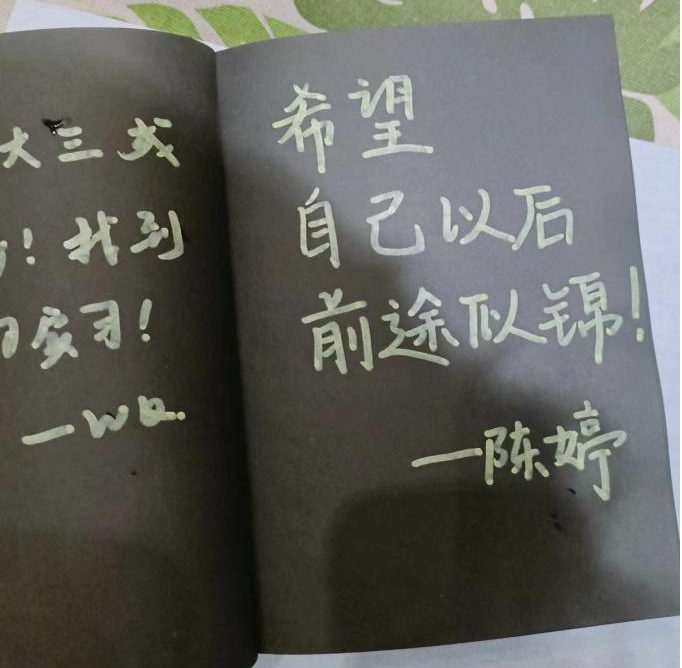 大三成
!找到
实习!
—WQ.
希望
自己以后
前途似锦!
—陈婷